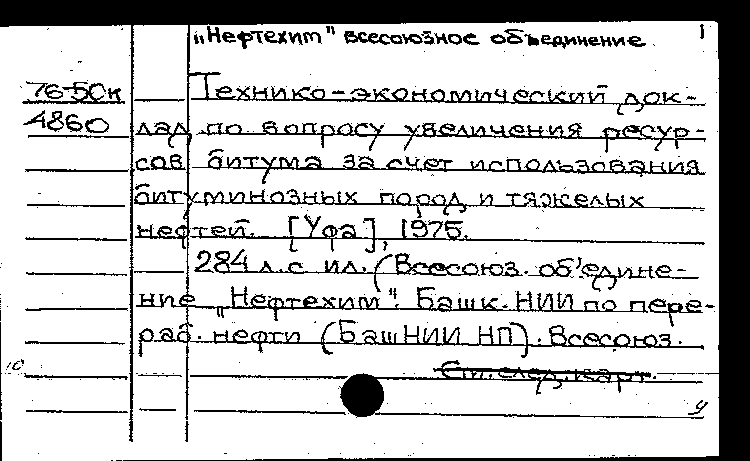 „Нефтехим" всесоюзное об'единение 1
76-50к Технико-экономический док-
4860 лад по вопросу увеличения ресур-
сов битума за счет использования
битуминозных пород и тяжелых
нефтей. [Уфа], 1975.
284 л. с ил. (Всесоюз. об'едине-
ние „Нефтехим". Башк. НИИ по пере-
раб. нефти (БашНИИ НП). Всесоюз.
См. след. карт.